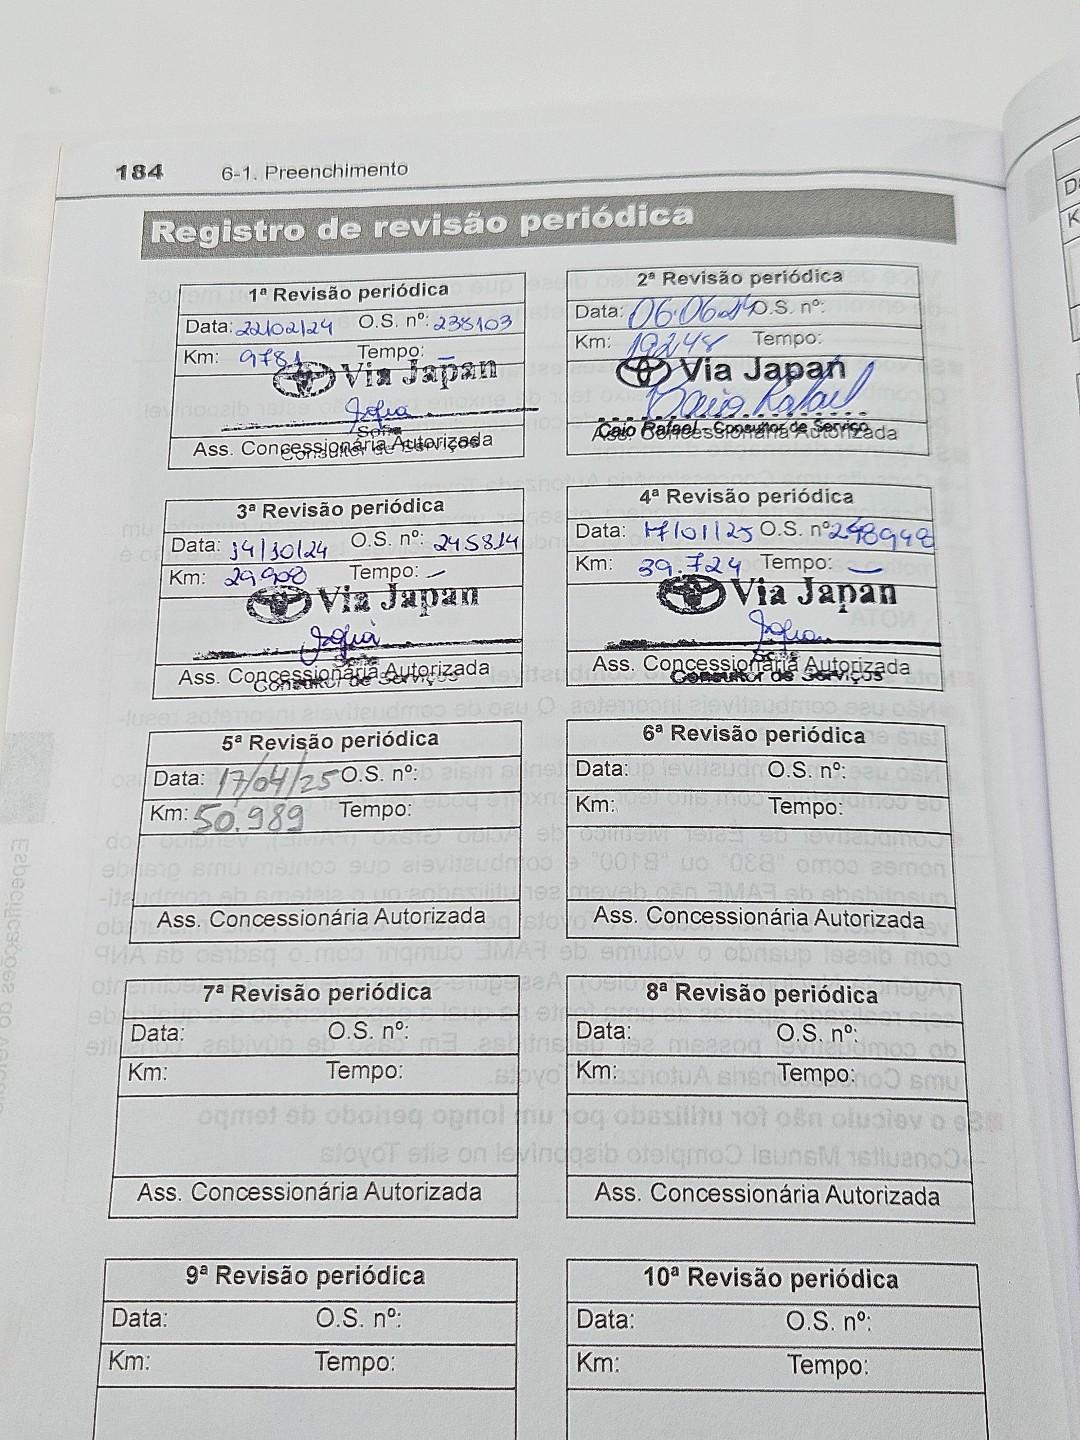 184 6-1. Preenchimento
Registro de revisão periódica
1ª Revisão periódica
Data: 22/02/24 O.S. nº: 238103
Km: 9781 Tempo: –
Via Japan
Sofia
Sofia
Consultor de Serviços
Ass. Concessionária Autorizada
2ª Revisão periódica
Data: 06.06.24 O.S. nº:
Km: 19248 Tempo:
Via Japan
Caio Rafael
Caio Rafael - Consultor de Serviço
Ass. Concessionária Autorizada
3ª Revisão periódica
Data: 14/10/24 O.S. nº: 245814
Km: 29.908 Tempo: –
Via Japan
Sofia
Ass. Concessionária Autorizada
Consultor de Serviços
4ª Revisão periódica
Data: 17/01/25 O.S. nº 248948
Km: 39.724 Tempo: –
Via Japan
Sofia
Ass. Concessionária Autorizada
Consultor de Serviços
5ª Revisão periódica
Data: 17/04/25 O.S. nº:
Km: 50.989 Tempo:
Ass. Concessionária Autorizada
6ª Revisão periódica
Data: O.S. nº:
Km: Tempo:
Ass. Concessionária Autorizada
7ª Revisão periódica
Data: O.S. nº:
Km: Tempo:
Ass. Concessionária Autorizada
8ª Revisão periódica
Data: O.S. nº:
Km: Tempo:
Ass. Concessionária Autorizada
9ª Revisão periódica
Data: O.S. nº:
Km: Tempo:
10ª Revisão periódica
Data: O.S. nº:
Km: Tempo: